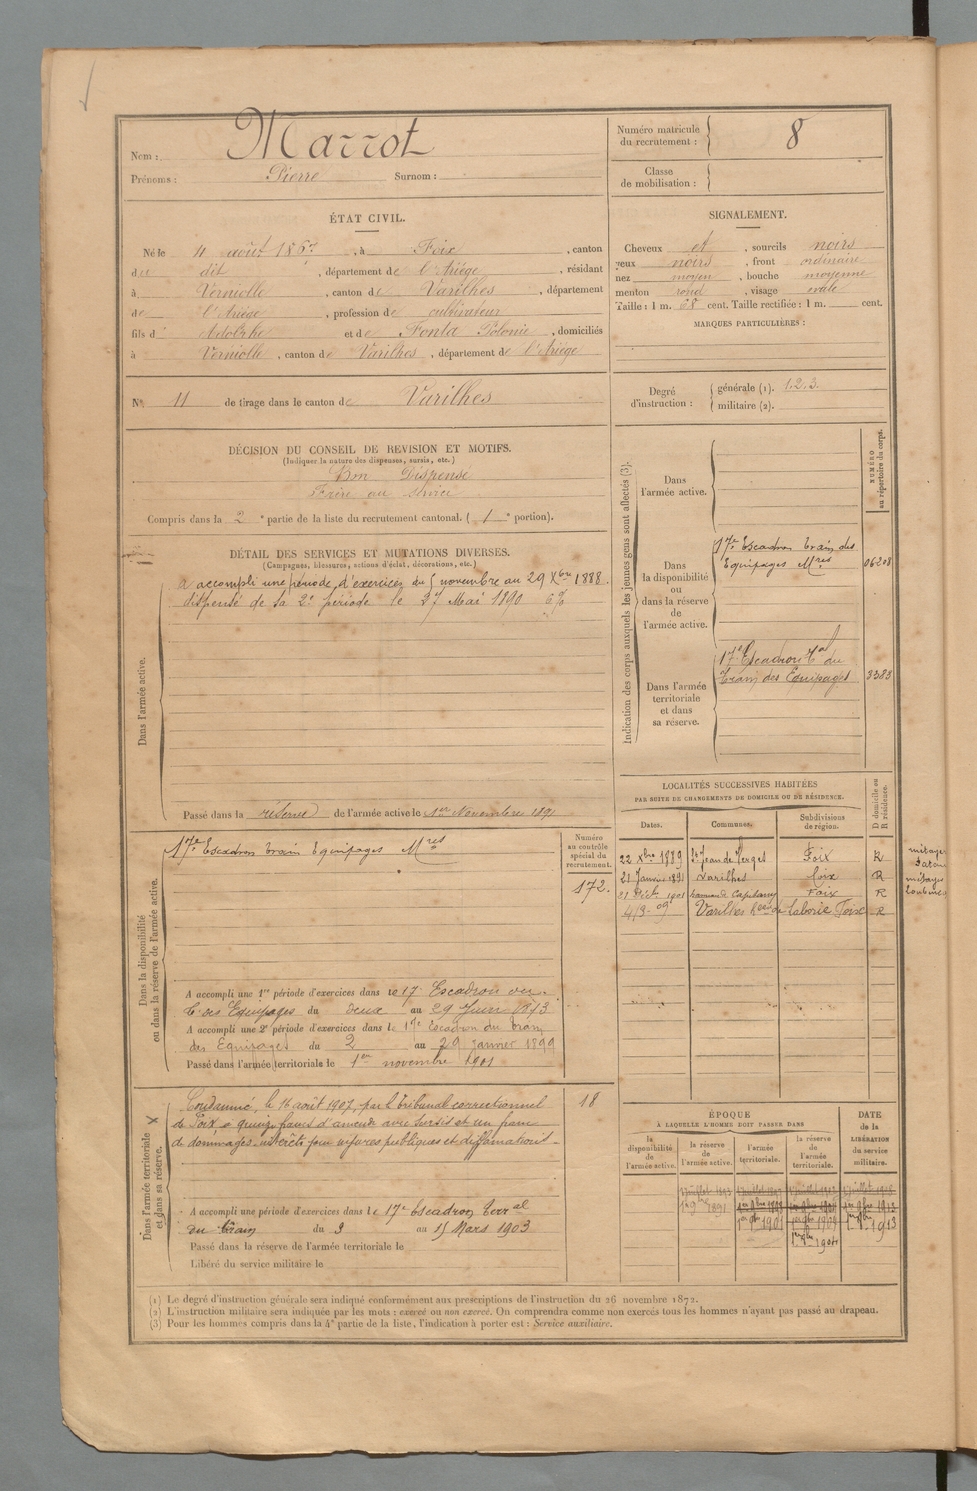 Nom : Marrot
Prénoms : Pierre Surnom :
Numéro matricule du recrutement : 8
Classe de mobilisation :
ÉTAT CIVIL.
Né le 4 août 186 , à Foix , canton
de dit , département de l'Ariège , résidant
à Verniolle , canton de Varilhes , département
de l'Ariège , profession de cultivateur
fils d' Adolphe et de Fonta , domiciliés
à Verniolle , canton de Varilhes , département de l'Ariège
SIGNALEMENT.
Cheveux et , sourcils noirs
yeux noirs , front ordinaire
nez moyen , bouche moyenne
menton rond , visage ovale
Taille : 1 m. 68 cent. Taille rectifiée : 1 m. cent.
MARQUES PARTICULIÈRES :
N° 11 de tirage dans le canton de Varilhes
Degré d'instruction :
générale (1). 1.2.3.
militaire (2).
DÉCISION DU CONSEIL DE REVISION ET MOTIFS.
(Indiquer la nature des dispenses, sursis, etc.)
Bon Dispensé
Frère au service
Compris dans la 2e partie de la liste du recrutement cantonal. ( 1e portion).
DÉTAIL DES SERVICES ET MUTATIONS DIVERSES.
(Campagnes, blessures, actions d'éclat, décorations, etc.)
Dans l'armée active.
a accompli une période d'exercices du 5 novembre au 29 Xbre 1888.
dispensé de sa 2e période le 27 Mai 1890
Passé dans la réserve de l'armée active le 1er Novembre 1891
Indication des corps auxquels les jeunes gens sont affectés (3).
NUMÉRO au répertoire du corps.
Dans l'armée active.
Dans la disponibilité ou dans la réserve de l'armée active.
17e Escadron train des
Equipages Mres 06208
Dans l'armée territoriale et dans sa réserve.
17e Escadron Tal du
Train des Equipages 3383
LOCALITÉS SUCCESSIVES HABITÉES
PAR SUITE DE CHANGEMENTS DE DOMICILE OU DE RÉSIDENCE.
D domicile ou R résidence.
Dates. Communes. Subdivisions de région.
22 Xbre 1889 St Jean de Verges Foix R
21 Janvier 1891 Varilhes Foix R
1901 Foix R
4/3-09 Varilhes Laborie Foix R
Dans la disponibilité ou dans la réserve de l'armée active.
Numéro au contrôle spécial du recrutement.
17e Escadron train Equipages Mres
172.
A accompli une 1re période d'exercices dans le 17e Escadron du
T. des Equipages du deux au 29 Juin 1893
A accompli une 2e période d'exercices dans le 17e Escadron du train
des Equipages du 2 au 29 janvier 1899
Passé dans l'armée territoriale le 1er novembre 1901
Dans l'armée territoriale et dans sa réserve.
X
Condamné, le 16 août 1907, par le tribunal correctionnel
de Foix, à quinze francs d'amende avec sursis et un franc
de dommages-intérêts pour injures publiques et diffamations
18
A accompli une période d'exercices dans le 17e Escadron Terral
du train du 3 au 15 Mars 1903
Passé dans la réserve de l'armée territoriale le
Libéré du service militaire le
ÉPOQUE
À LAQUELLE L'HOMME DOIT PASSER DANS
la disponibilité de l'armée active.
la réserve de l'armée active.
l'armée territoriale.
la réserve de l'armée territoriale.
DATE de la LIBÉRATION du service militaire.
(1) Le degré d'instruction générale sera indiqué conformément aux prescriptions de l'instruction du 26 novembre 1872.
(2) L'instruction militaire sera indiquée par les mots : exercé ou non exercé. On comprendra comme non exercés tous les hommes n'ayant pas passé au drapeau.
(3) Pour les hommes compris dans la 4e partie de la liste, l'indication à porter est : Service auxiliaire.